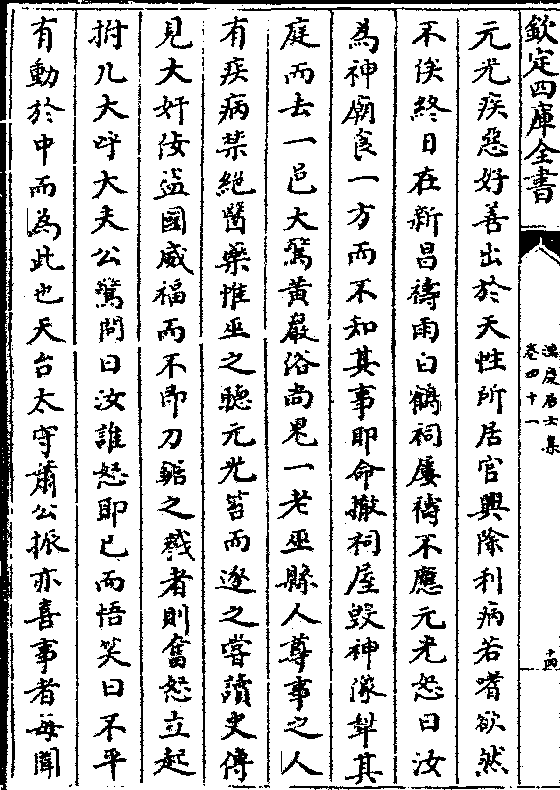 欽定四庫全書
卷四十一
元光疾惡好善出於天性所居官興除利病若嗜欲然
不俟終日在新昌禱雨白鶴祠屢禱不應元光怒曰汝
為神廟食一方而不知其事即命撤祠屋毀神像犁其
庭而去一邑大驚黃巖俗尚鬼一老巫縣人尊事之人
有疾病禁絕醫藥惟巫之聽元光笞而逐之嘗讀史傳
見大奸佞盜國威福而不即刀鋸之戮者則奮怒立起
拊几大呼大夫公驚問曰汝誰怒耶已而悟笑曰不平
有動於中而為此也天台太守蕭公振亦喜事者每聞